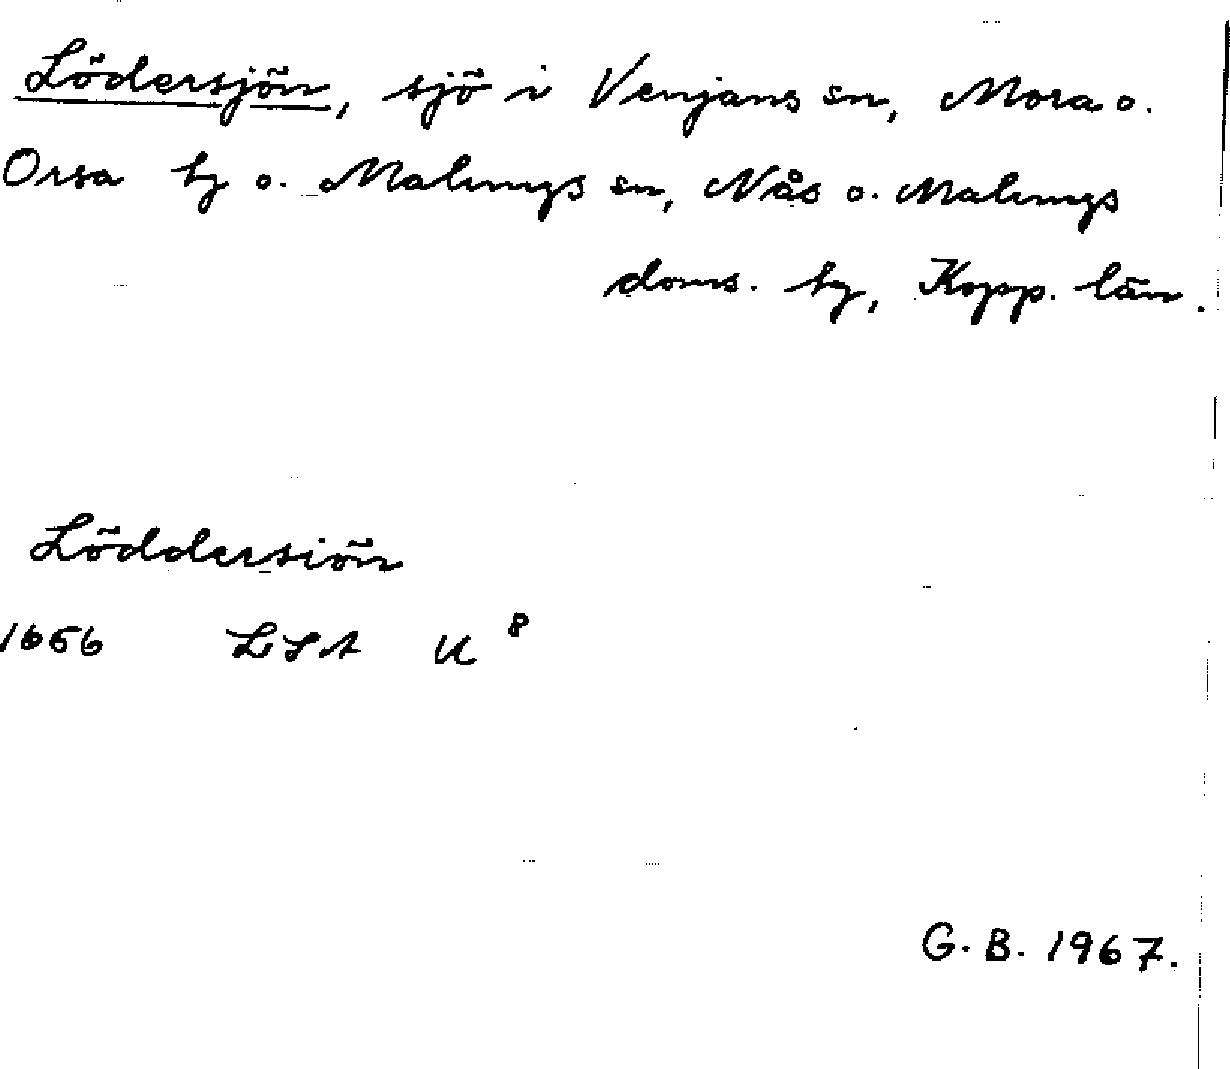 Lödersjön, sjö i Venjans sn, Mora o.
Orsa tg o. Malungs sn, Nås o. Malungs
doms. tg, Kopp. län.
Löddersiön
1656 LSA K 8
G. B. 1967.